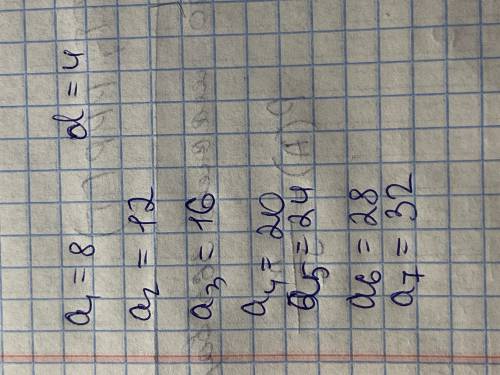 a₁ = 8 d = 4
a₂ = 12
a₃ = 16
a₄ = 20
a₅ = 24
a₆ = 28
a₇ = 32